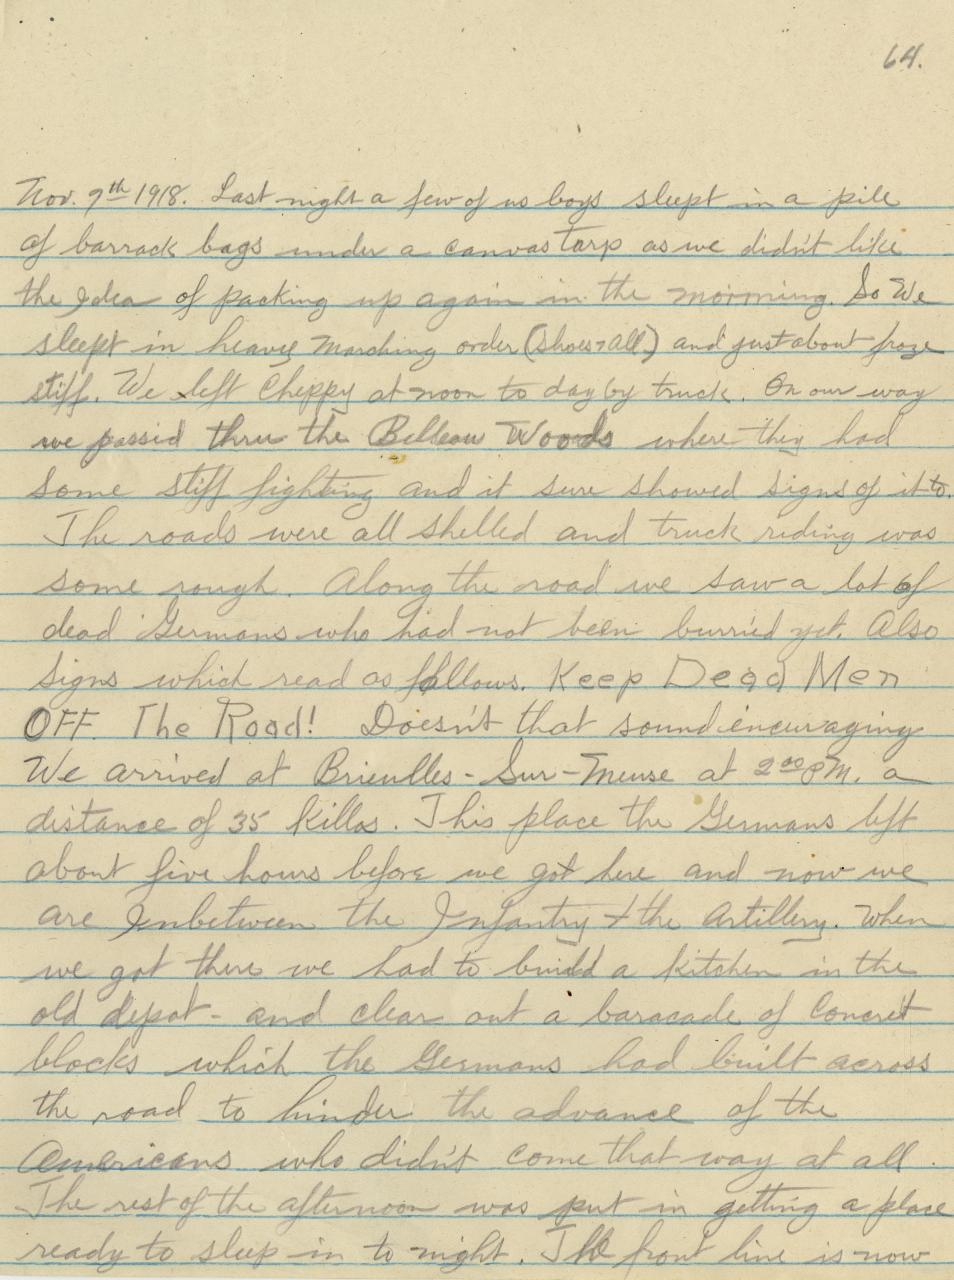 64.
Nov. 9th 1918. Last night a few of us boys slept in a pile
of barrack bags under a canvas tarp as we didn't like
the Idea of packing up again in the morning. So We
sleept in heavy Marching order (Shoes & all) and just about froze
stiff. We left Cheppy at noon to day by truck. On our way
we passid thru the Belleau Woods where they had
some stiff fighting and it sure showed signs of it to.
The roads were all shelled and truck riding was
some rough. Along the road we saw a lot of
dead Germans who had not been burried yet. Also
signs which read as follows. Keep Dead Men
OFF The Road! Doesn't that sound encuraging
We arrived at Brieulles-Sur-Meuse at 2:00 P.M. a
distance of 35 Killos. This place the Germans left
about five hours before we got here and now we
are Inbetween the Infantry + the Artillery. When
we got there we had to build a kitchen in the
old depot - and clear out a baracade of Concret
blocks which the Germans had built across
the road to hinder the advance of the
Americans who didn't come that way at all.
The rest of the afternoon was put in getting a place
ready to sleep in to night. The front line is now